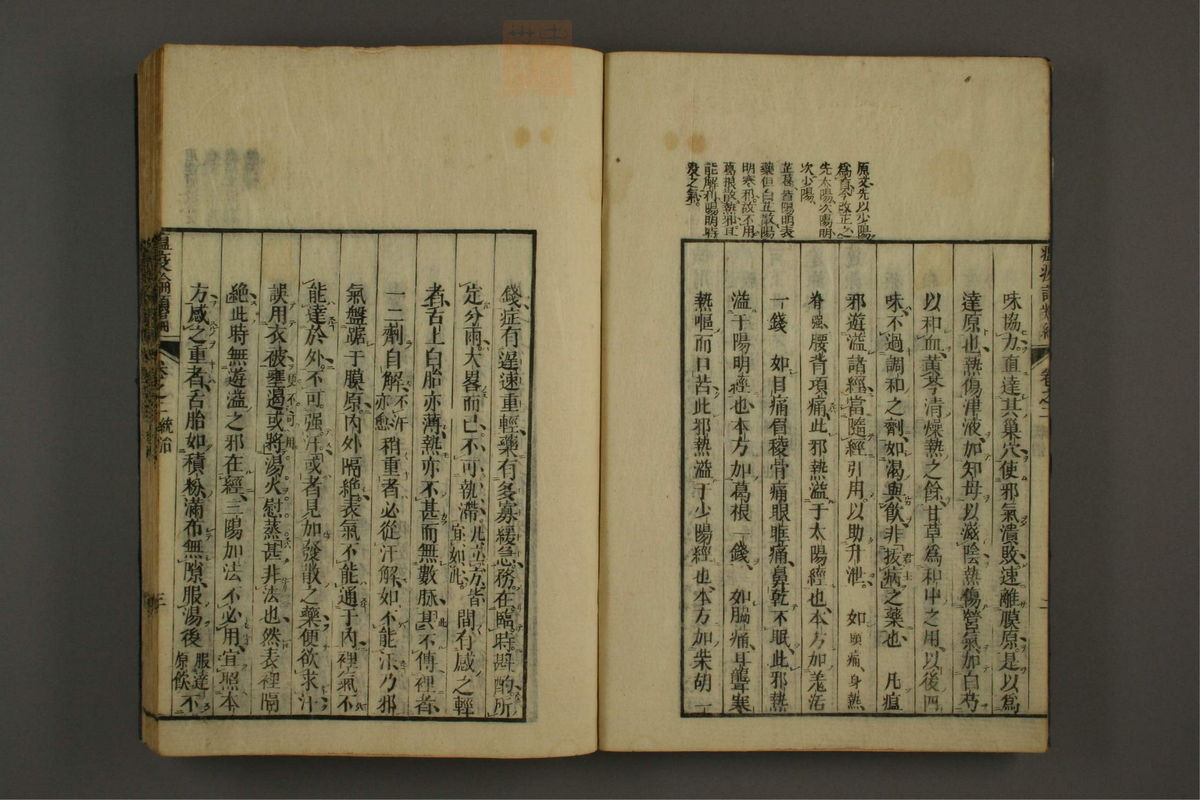 原文先以少陽
爲首今改正之
先太陽次陽明
次少陽
芷葛皆陽明表
藥但白芷散陽
明寒邪故不用
葛根散熱邪且
能解利陽明時
疫之氣
卷之二
味協力直達其巢穴使邪氣潰敗速離膜原是以爲
達原也熱傷津液加知母以滋陰熱傷營氣加白芍
以和血黄芩清燥熱之餘甘草爲和中之用以後四
味不過調和之劑如渴與飲非拔病之藥也 凡瘟
邪遊溢諸經當隨經引用以助升泄 如頭痛身熱
脊强腰背項痛此邪熱溢于太陽經也本方加羗活
一錢 如目痛眉稜骨痛眼眶痛鼻乾不眠此邪熱
溢于陽明經也本方加葛根一錢 如脇痛耳聾寒
熱嘔而口苦此邪熱溢于少陽經也本方加柴胡一
錢症有遲速重輕藥有多寡緩急務在臨時斟酌所
定分兩大畧而已不可執滯凡立方皆宜如此間有感之輕
者舌上白胎亦薄熱亦不甚而無數脉其不傳裡者
一二劑自解不汗亦愈稍重者必從汗解如不能汗乃邪
氣盤踞于膜原内外隔絶表氣不能通于内裡氣不
能達於外不可强汗或者見加發散之藥便欲求汗
誤用衣被壅遏或將湯火慰蒸甚非法也然表裡隔
絶此時無遊溢之邪在經三陽加法不必用宜照本
方感之重者舌胎如積粉滿布無隙服湯後服達原飲不